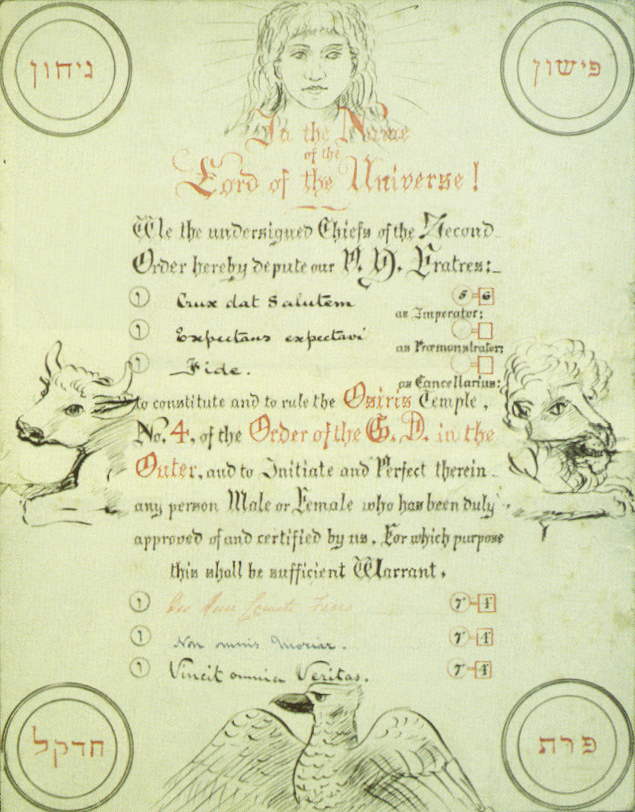 גיחון
פישון
In the Name
of the
Lord of the Universe!
We the undersigned Chiefs of the Second
Order hereby depute our V. H. Fratres:
Crux dat Salutem 5 = 6
as Imperator:
Expectans expectavi
as Præmonstrator:
Fide.
as Cancellarius:
to constitute and to rule the Osiris Temple,
No. 4, of the Order of the G. D. in the
Outer, and to Initiate and Perfect therein
any person Male or Female who has been duly
approved of and certified by us. For which purpose
this shall be sufficient Warrant.
Deo Duce Comite Ferro 7 = 4
Non omnis Moriar. 7 = 4
Vincit omnia Veritas. 7 = 4
חדקל
פרת